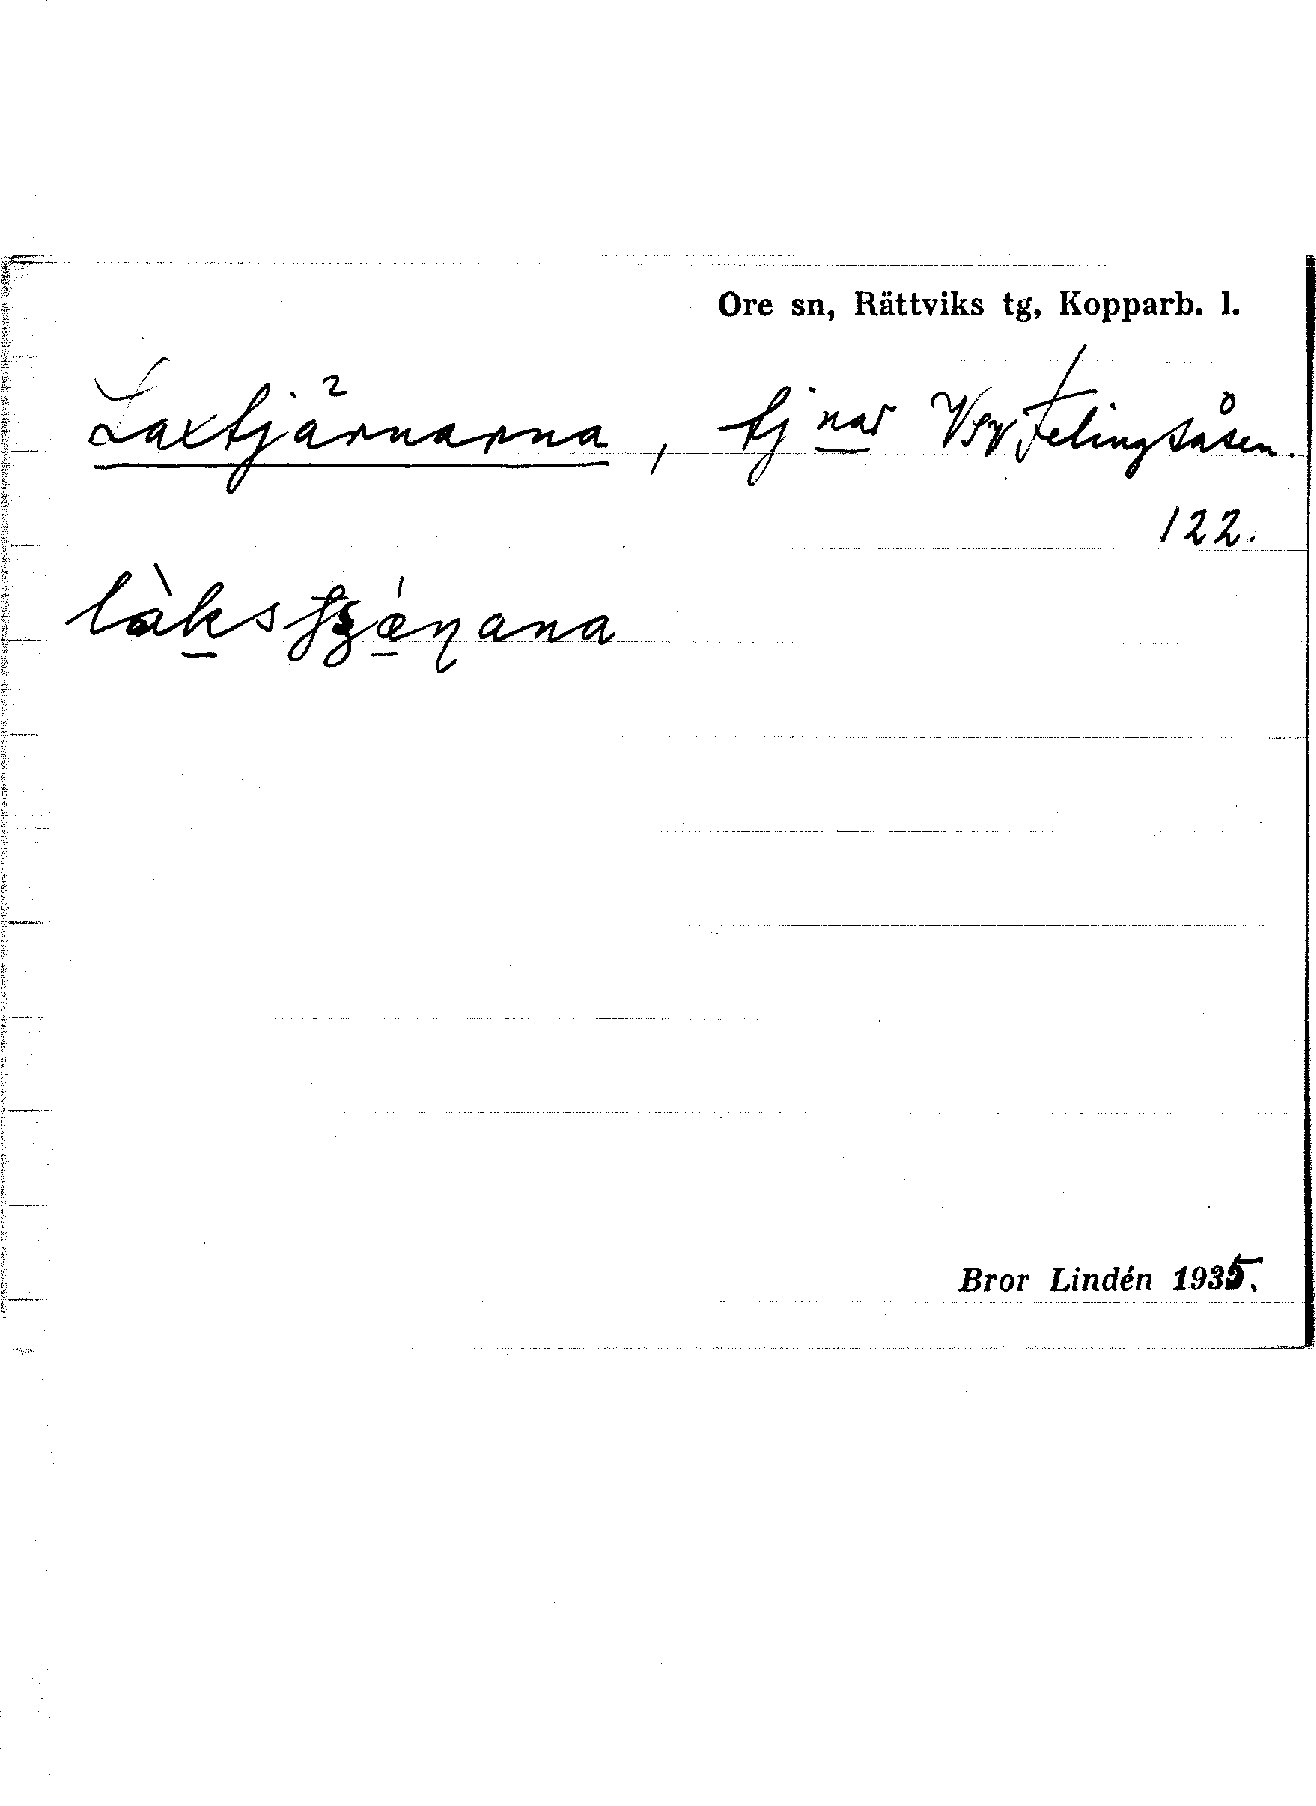 Ore sn, Rättviks tg, Kopparb. l.
Laxtjärnarna, tjnar VSV Felingsåsen.
122.
Bror Lindén 1935.